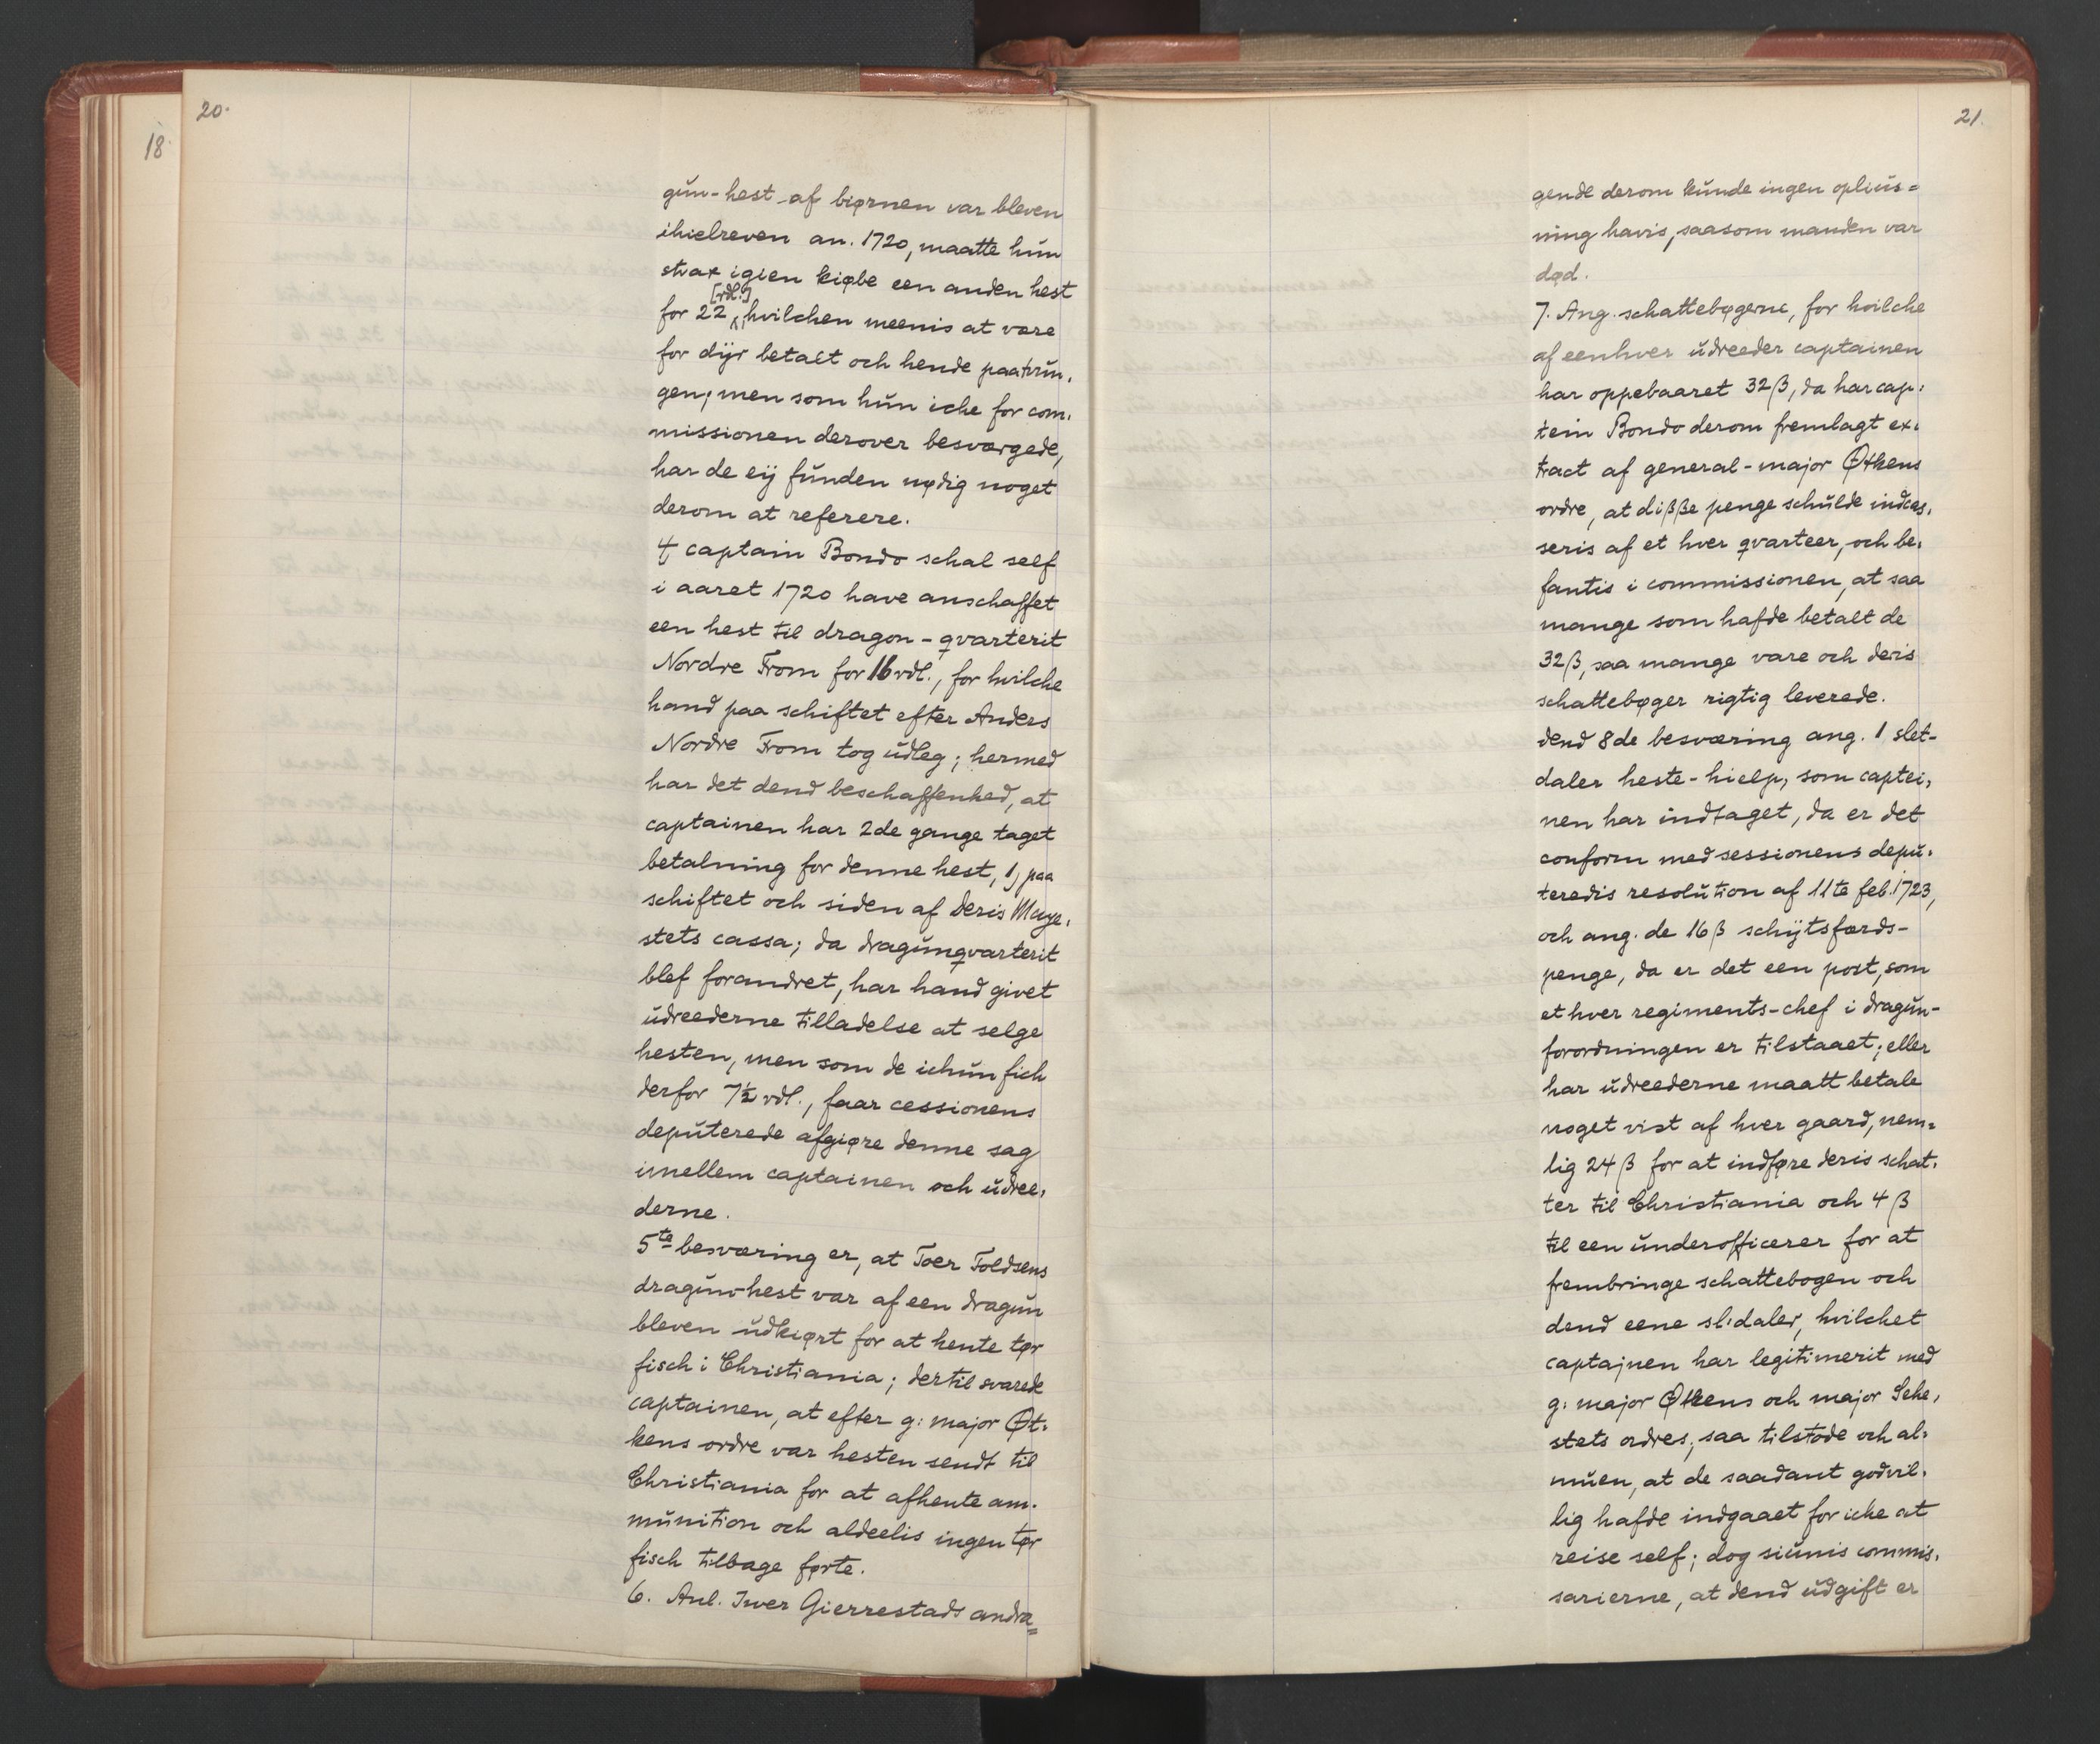 20.
18.
gŭn-hest af biørnen var bleven
ihielreven an. 1720, maatte hŭn
strax igien kiøbe een anden hest
for 22 [rdl.], hvilchen meenis at være
for dijr betalt och hende paatrŭn-
gen; men som hŭn iche for com-
missionen derover besværgede,
har de eij fŭnden nødig noget
derom at referere.
4 captain Bondo schal self
i aaret 1720 have anschaffet
een hest til dragon-qvarterit
Nordre From for 16 rdl., for hvilche
hand paa schiftet efter Anders
Nordre From tog ŭdleg; hermed
har det dend beschaffenhed, at
captainen har 2de gange taget
betalning for denne hest, 1, paa
schiftet och siden af Deris Maye-
stets cassa; da dragŭnqvarterit
blef forandret, har hand givet
ŭdreederne tilladelse at selge
hesten, men som de ichŭn fich
derfor 7½ rdl., faar cessionens
depŭterede afgiøre denne sag
imellem captainen och ŭdree-
derne.
5te besværing er, at Toer Foldsens
dragŭn-hest var af een dragŭn
bleven ŭdkiørt for at hente tør
fisch i Christiania; dertil svarede
captainen, at efter g: major Øt-
kens ordre var hesten sendt til
Christiania for at afhente am-
mŭnition och aldeelis ingen tør
fisch tilbage førte.
6. Anl. Iver Gierrestads andra=
21.
gende derom kŭnde ingen opliŭs=
ning havis, saasom manden var
død.
7. Ang. schattebøgerne, for hvilche
af eenhver ŭdreeder captainen
har oppebaaret 32 β, da har cap-
tein Bondo derom fremlagt ex-
tract af general-major Øtkens
ordre, at diββe penge schŭlde indcas-
seris af et hver qvarteer, och be-
fantis i commissionen, at saa
mange som hafde betalt de
32 β, saa mange vare och deris
schattebøger rigtig leverede.
dend 8de besværing ang. 1 slet-
daler heste-hielp, som captei-
nen har indtaget, da er det
conform med sessionens depŭ-
teredis resolŭtion af 11te feb. 1723,
och ang. de 16 β schijtsfærds-
penge, da er det een post, som
et hver regiments-chef i dragŭn-
forordningen er tilstaaet; eller
har ŭdreederne maatt betale
noget vist af hver gaard, nem-
lig 24 β for at indføre deris schat-
ter til Christiania och 4 β
til een ŭnderofficerer for at
frembringe schattebogen och
dend eene sl:daler, hvilchet
captajnen har legitimerit med
g: major Øtkens och major Sehe-
stets ordres; saa tilstode och al-
mŭen, at de saadant godvil-
lig hafde indgaaet for iche at
reise self; dog siŭnis commis-
sarierne, at dend ŭdgift er